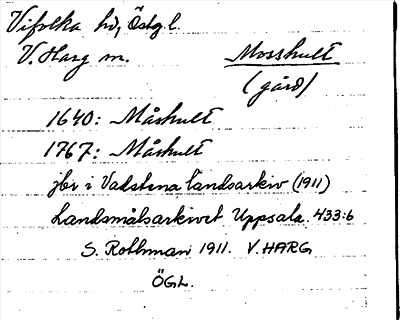 Vifolka hd, Östgl.
V. Harg sn.
Mosshult
(gård)
1640: Måshult
1767: Måshult
jbr i Vadstena landsarkiv (1911)
Landsmålsarkivet Uppsala. 433:6
S. Rothman 1911. V. HARG
ÖGL.